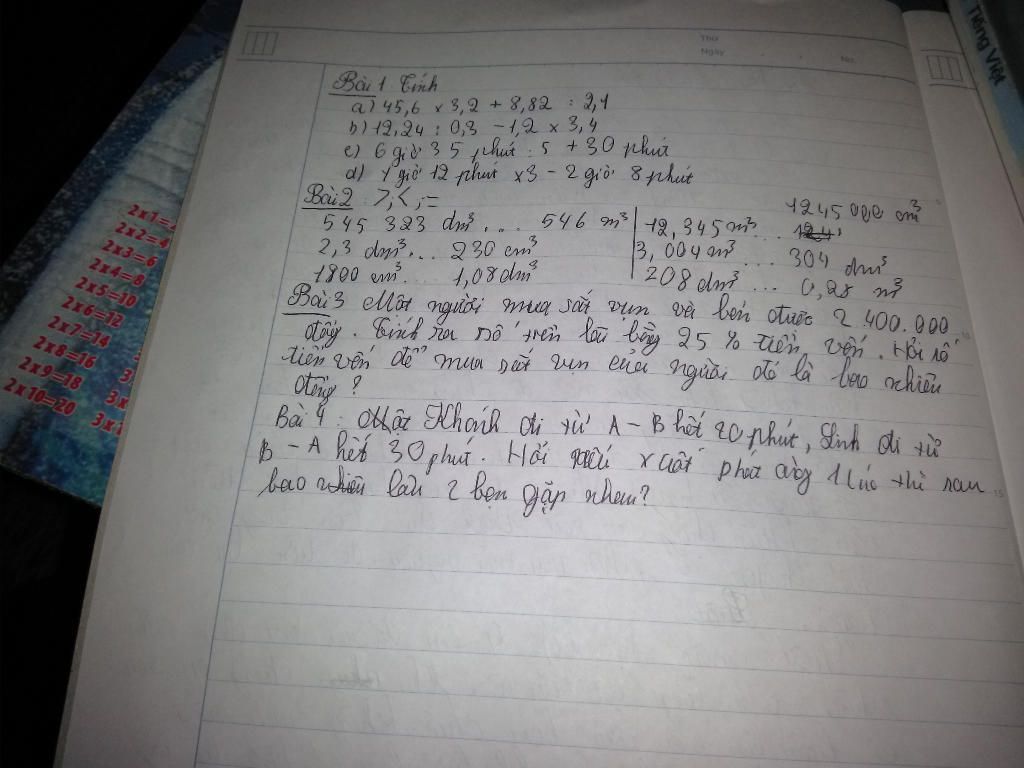 Thứ
Ngày
No.
Tiếng Việt
Bài 1 Tính
a) 45,6 x 3,2 + 8,82 : 2,1
b) 12,24 : 0,3 - 1,2 x 3,4
c) 6 giờ 35 phút : 5 + 30 phút
d) 1 giờ 12 phút x3 - 2 giờ 8 phút
Bài 2 : >,<,=
545 323 dm³ ... 546 m³
2,3 dm³... 230 cm³
1800 cm³... 1,08dm³
1245000 cm³
12,345m³...
3,004m³ ... 304 dm³
208dm³ ... 0,28 m³
Bài 3 Một người mua sắt vụn và bán được 2.400.000
đồng. Tính ra số tiền lãi bằng 25 % tiền vốn. Hỏi số
tiền vốn để mua sắt vụn của người đó là bao nhiêu
đồng ?
Bài 4 : Khánh đi từ A - B hết 20 phút, Linh đi từ
B - A hết 30 phút. Hỏi nếu xuất phát cùng 1 lúc thì sau
bao nhiêu lâu 2 bạn gặp nhau?
5
10
15
2x1=
2x2=4
2x3=6
2x4=8
2x5=10
2x6=12
2x7=14
2x8=16
2x9=18
2x10=20
3
3x
3x1